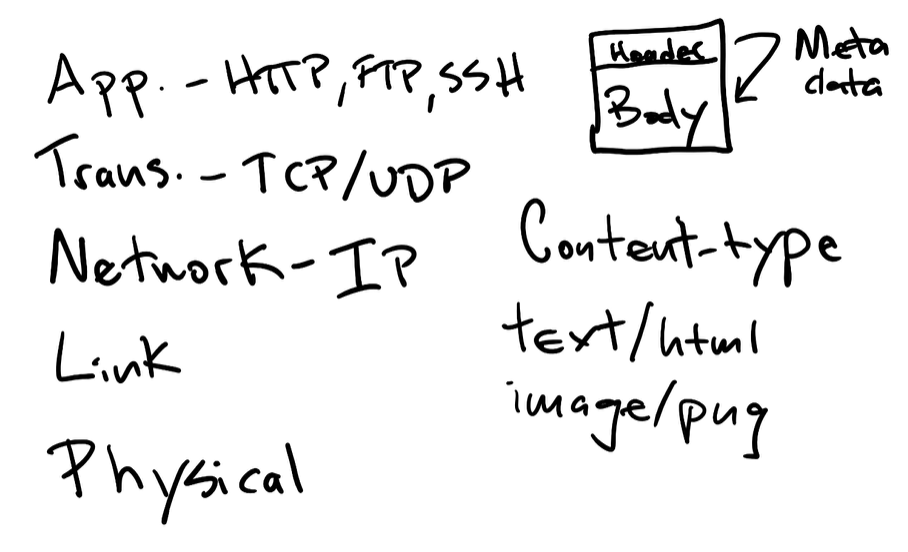 App. - HTTP, FTP, SSH
Trans. - TCP/UDP
Network - IP
Link
Physical
Header
Body
Meta
data
Content-type
text/html
image/png